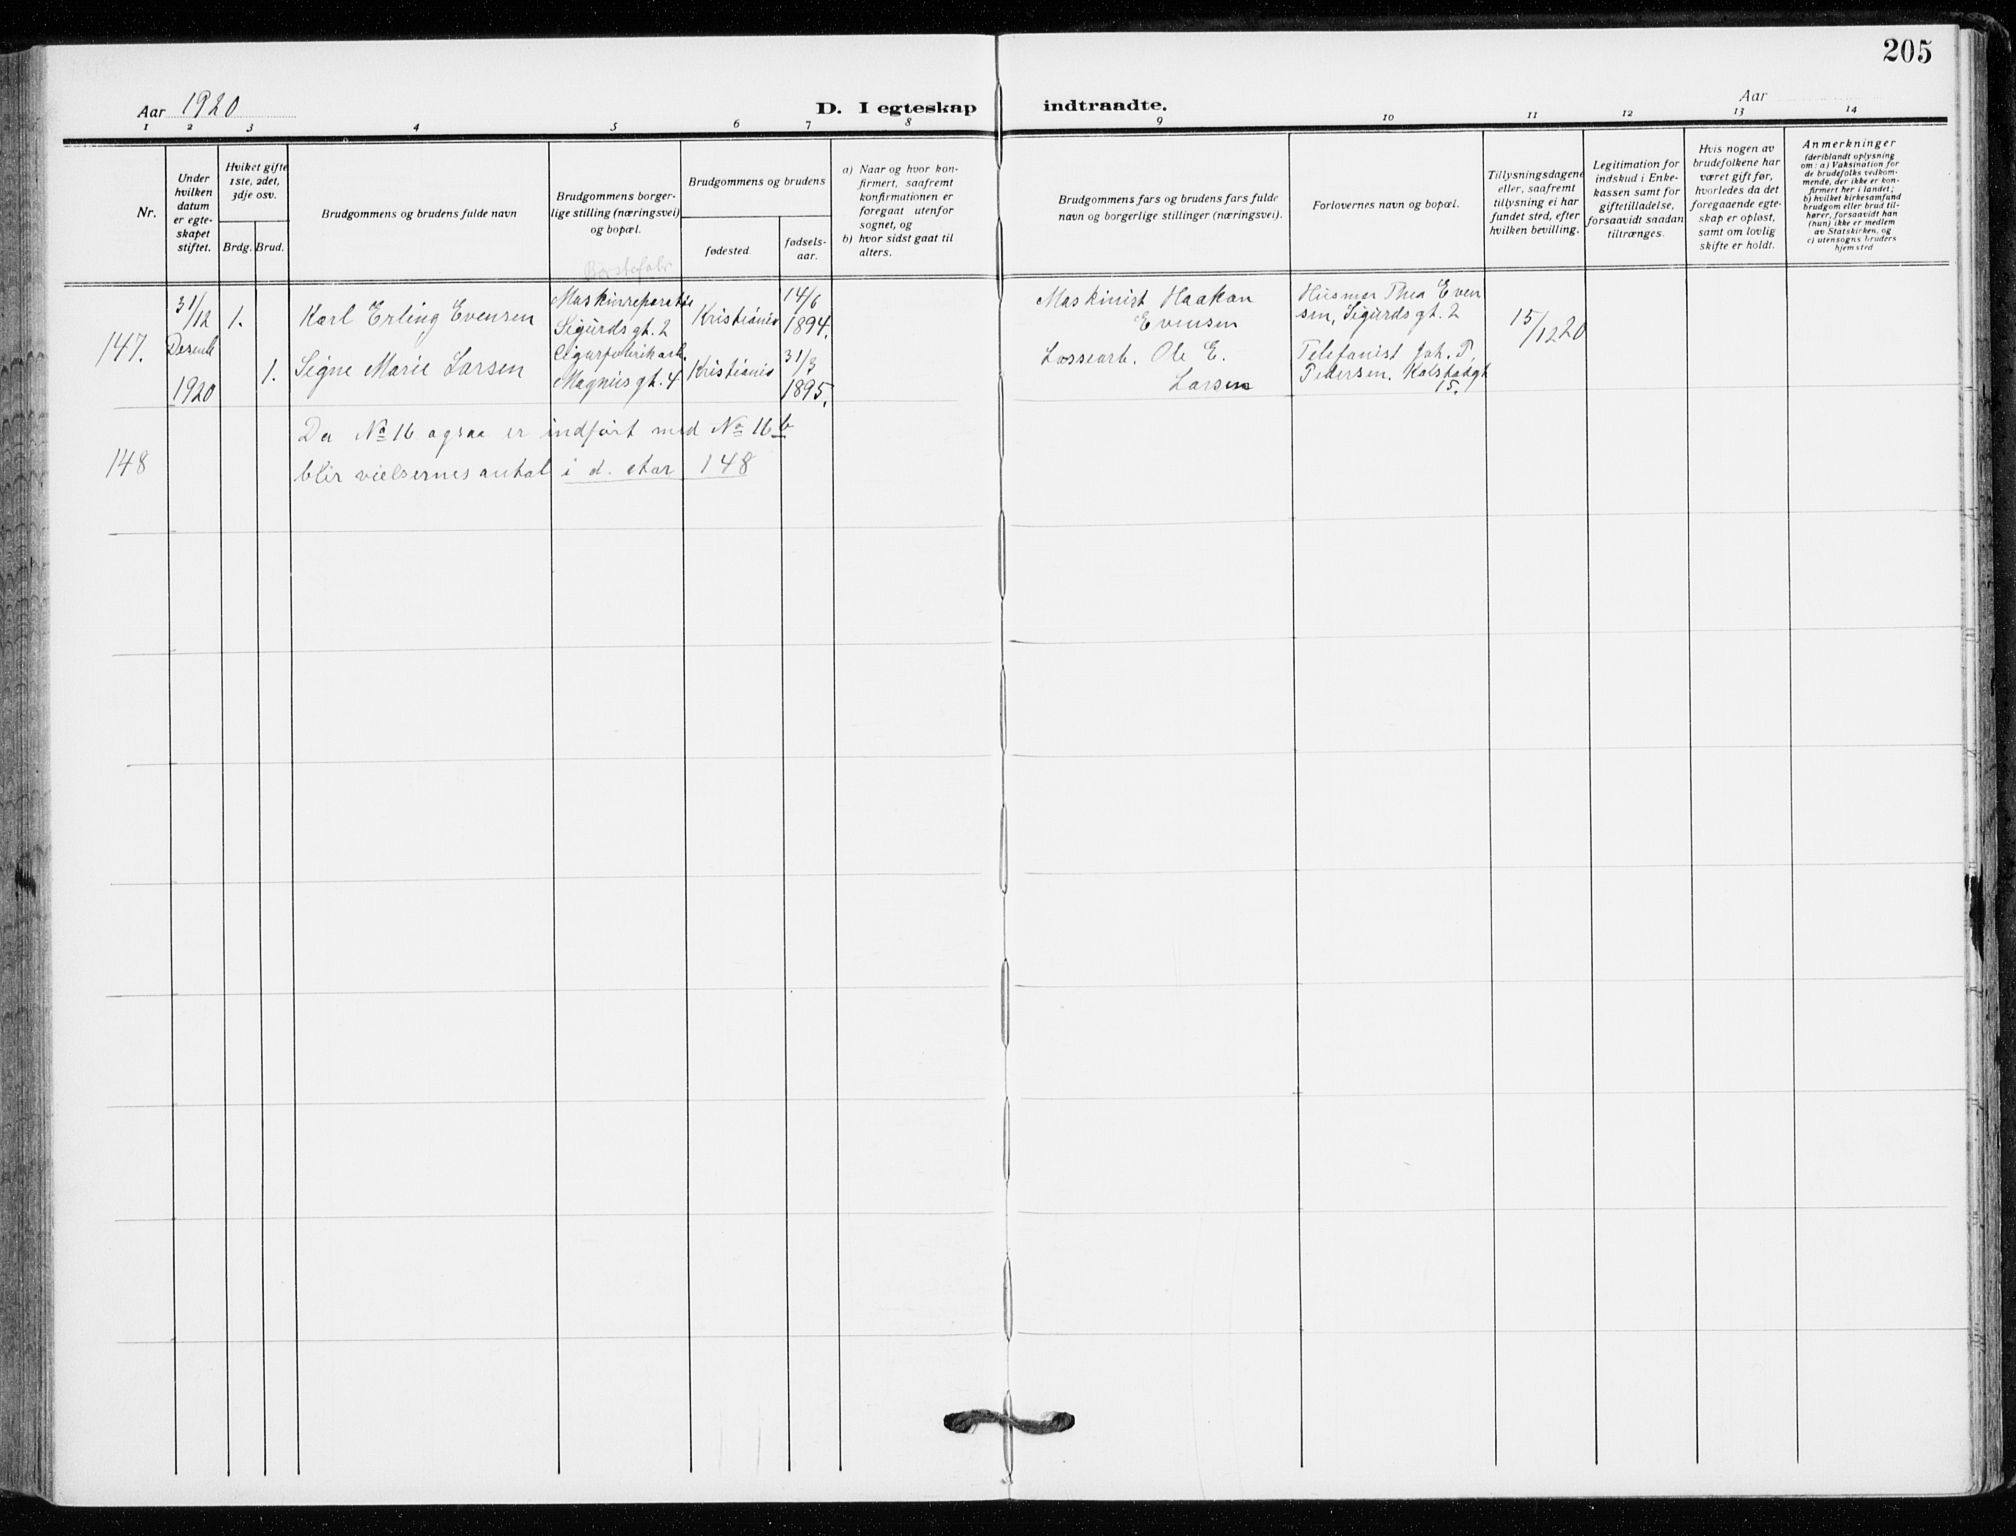 205
Aar 1920
D. I egteskap indtraadte.
Aar
1 2 3 4 5 6 7 8 9 10 11 12 13 14
Nr.
Under
hvilken
datum
er egte-
skapet
stiftet.
Hviket gifte
1ste, 2det,
3dje osv.
Brdg. Brud.
Brudgommens og brudens fulde navn
Brudgommens borger-
lige stilling (næringsvei)
og bopæl.
Brudgommens og brudens
fødested.
fødsels-
aar.
a) Naar og hvor kon-
firmert, saafremt
konfirmationen er
foregaat utenfor
sognet, og
b) hvor sidst gaat til
alters.
Brudgommens fars og brudens fars fulde
navn og borgerlige stillinger (næringsvei).
Forlovernes navn og bopæl.
Tillysningsdagene
eller, saafremt
tillysning ei har
fundet sted, efter
hvilken bevilling.
Legitimation for
indskud i Enke-
kassen samt for
giftetilladelse,
forsaavidt saadan
tiltrænges.
Hvis nogen av
brudefolkene har
været gift før,
hvorledes da det
foregaaende egte-
skap er opløst,
samt om lovlig
skifte er holdt.
Anmerkninger
(deriblandt oplysning
om: a) Vaksination for
de brudefolks vedkom-
mende, der ikke er kon-
firmert her i landet;
b) hvilket kirkesamfund
brudgom eller brud til-
hører, forsaavidt han
(hun) ikke er medlem
av Statskirken, og
c) utensogns bruders
hjemsted
147.
31/12
1920
1.
Karl Erling Evensen
Sigurds gt. 2
Kristiania
14/6
1894.
Maskinist Haakon
Evensen
Husmor Thea Even
sen, Sigurds gt. 2
15/12 20
1.
Signe Marie Larsen
Magnus gt. 4
Kristiania
31/3
1895.
Lossearb. Ole E.
Larsen
Telefonist Joh. P.
Pedersen. Kolstadgt
15.
148
Da No 16 ogsaa er indført med No 16 b
blir vielsernes antal i d. etar 148